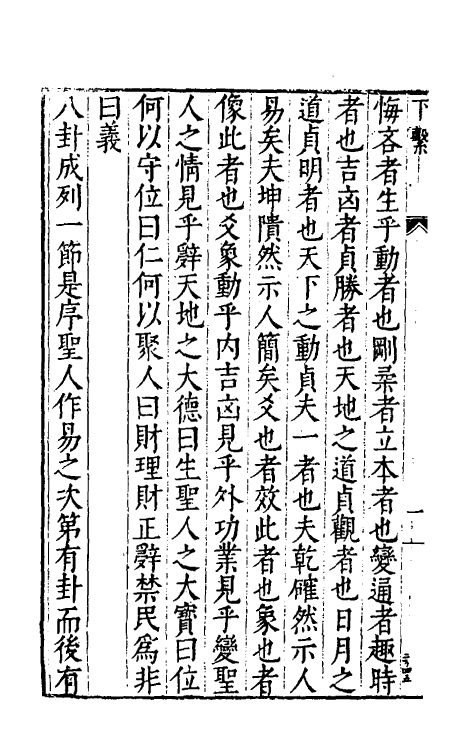 下繫
悔吝者生乎動者也剛柔者立本者也變通者趣時
者也吉凶者貞勝者也天地之道貞觀者也日月之
道貞明者也天下之動貞夫一者也夫乾確然示人
易矣夫坤隤然示人簡矣爻也者效此者也象也者
像此者也爻象動乎内吉凶見乎外功業見乎變聖
人之情見乎辭天地之大德曰生聖人之大寶曰位
何以守位曰仁何以聚人曰財理財正辭禁民爲非
曰義
八卦成列一節是序聖人作易之次第有卦而後有